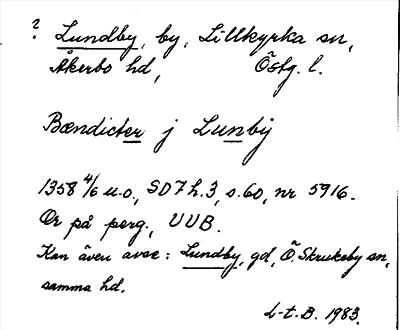 ? Lundby, by, Lillkyrka sn,
Åkerbo hd, Östg. l.
Bændicter j Lunbij
1358 4/6 u.o., SD7 h.3, s.60, nr 5916.
Or på perg., UUB.
Kan även avse: Lundby, gd, Ö. Skrukeby sn,
samma hd.
L-t.B. 1983.